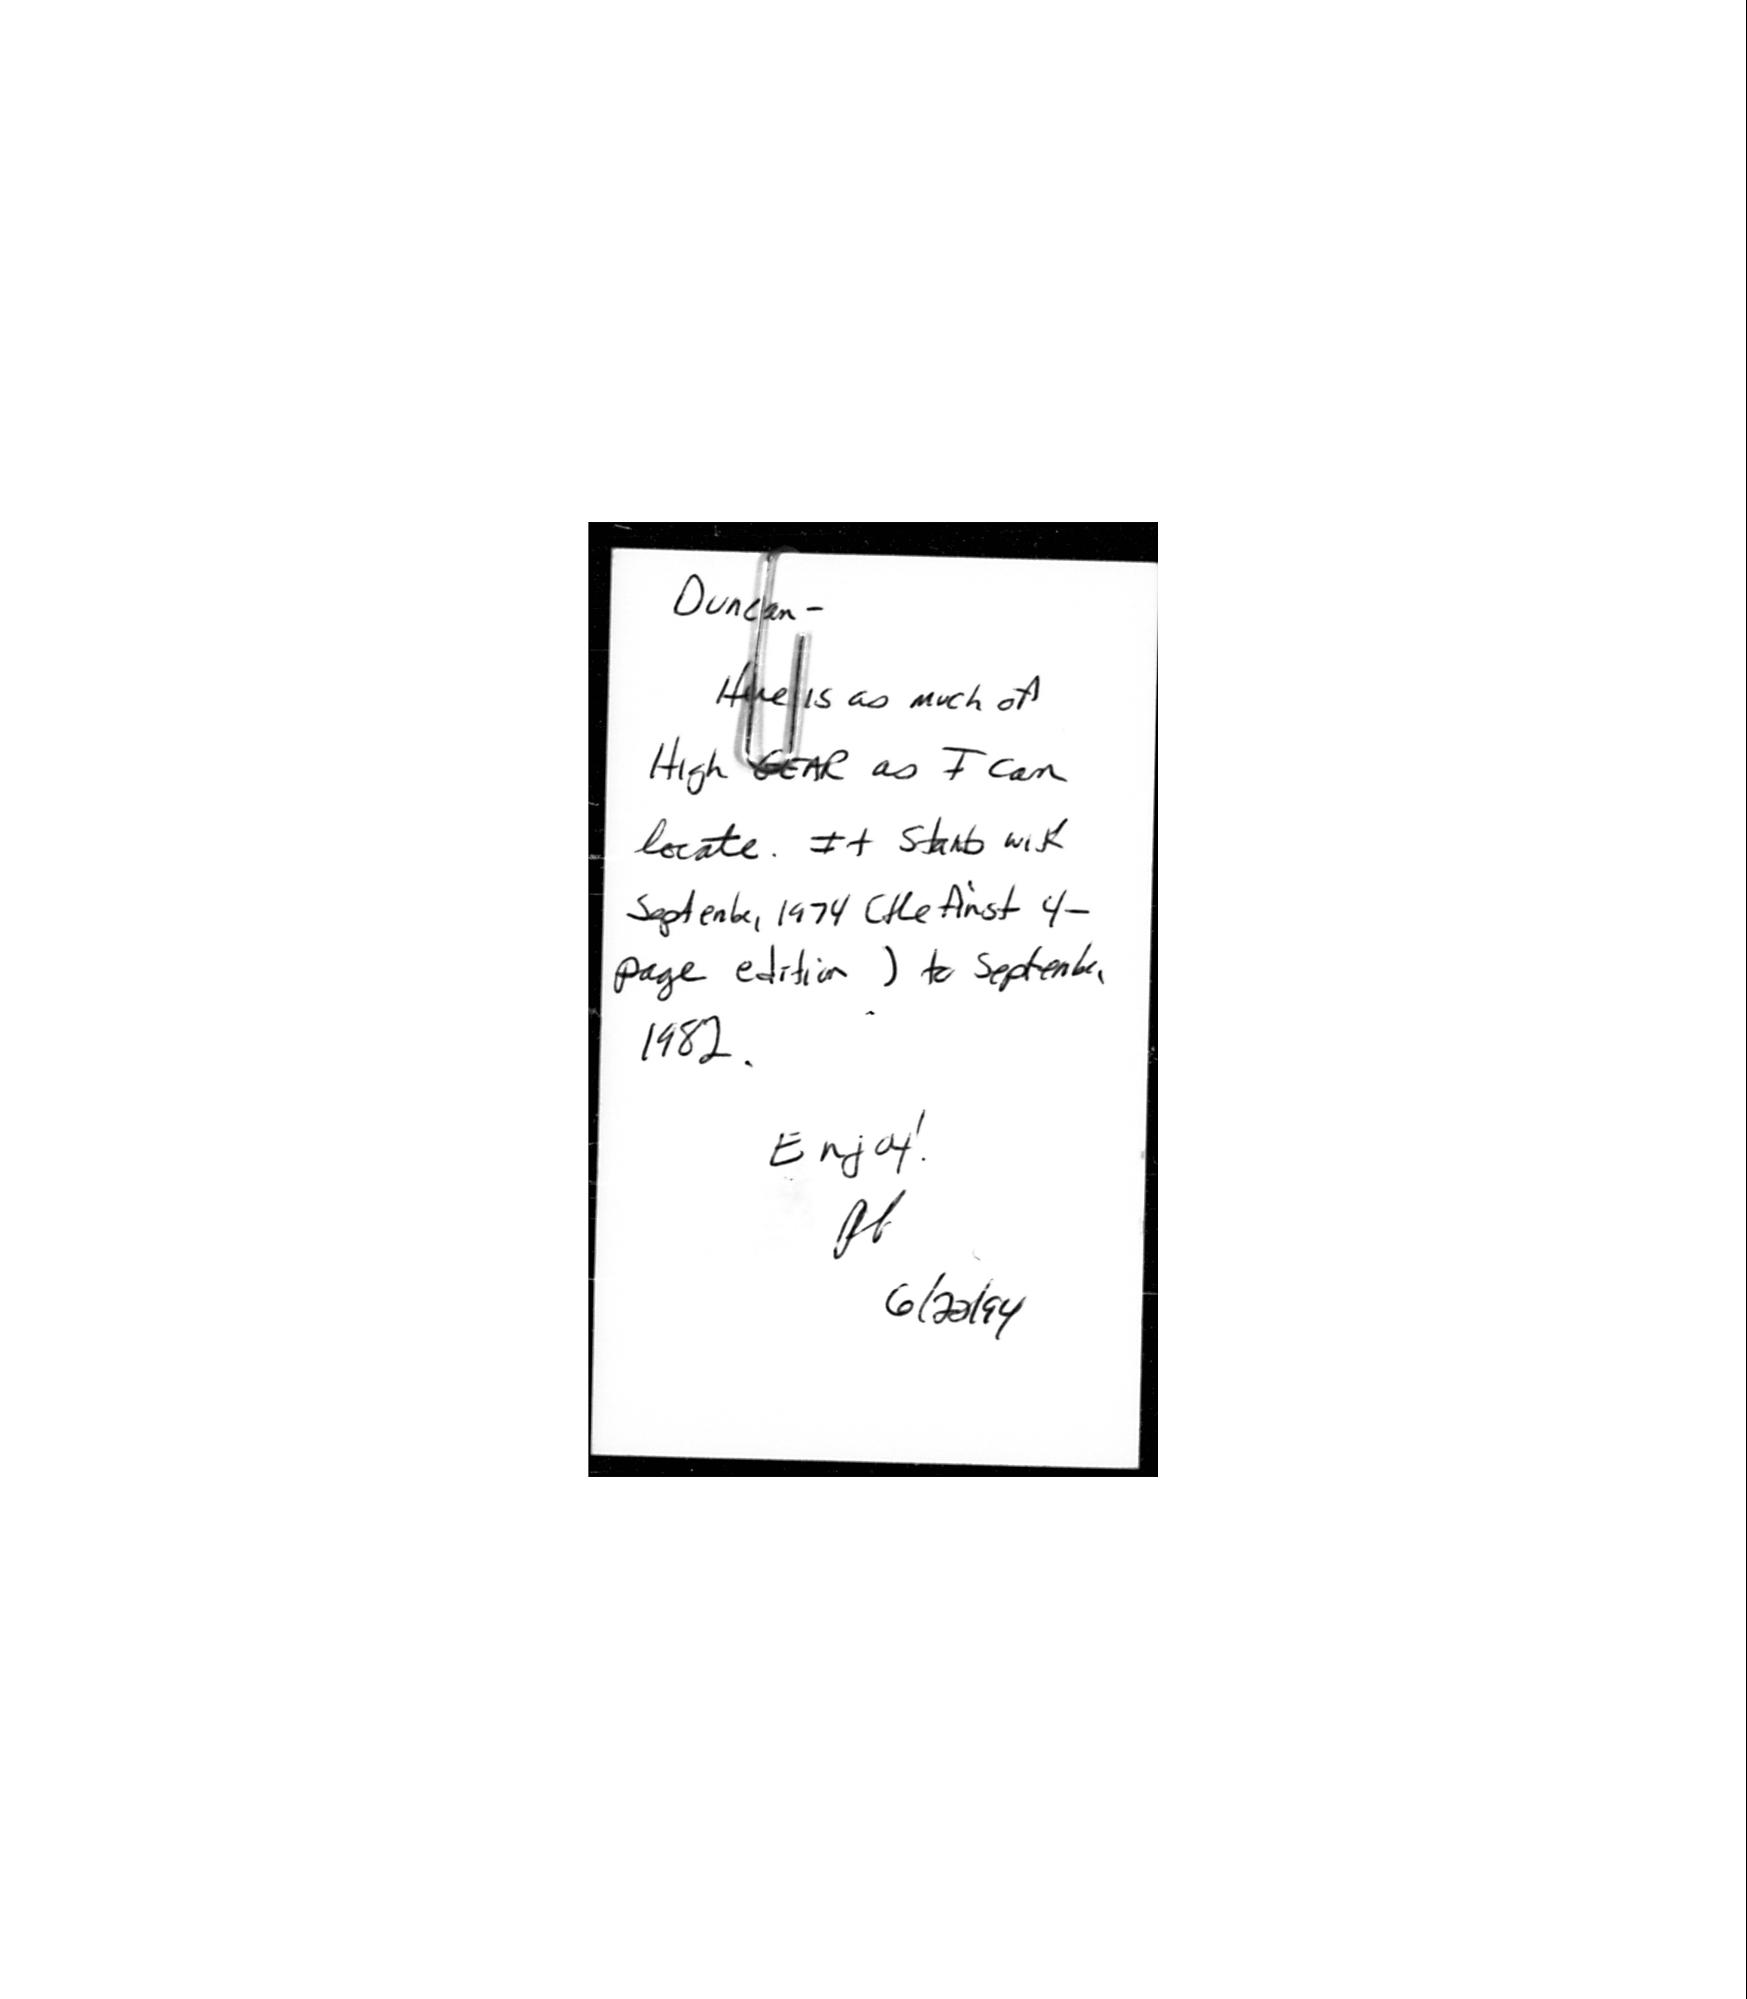 Duncan -
Here is as much of
High GEAR as I can
locate. It starts with
September, 1974 (the first 4-
page edition ) to September,
1982.
Enjoy!
6/22/94